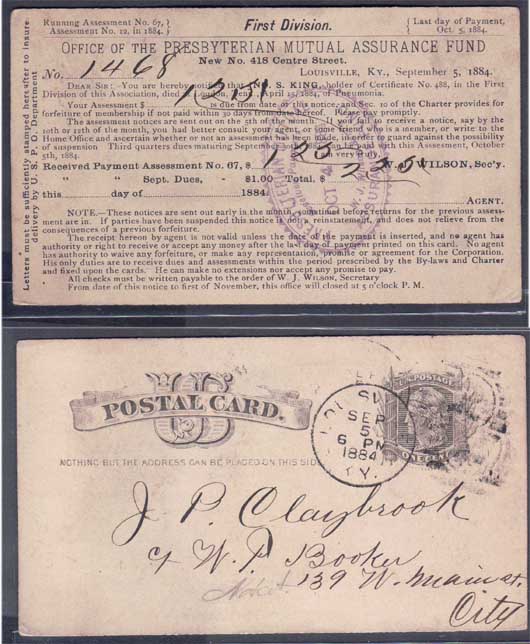 Running Assessment No. 67,
Assessment No. 12, in 1884.
First Division.
Last day of Payment,
Oct. 5, 1884.
OFFICE OF THE PRESBYTERIAN MUTUAL ASSURANCE FUND
New No. 418 Centre Street.
No. 1468
LOUISVILLE, KY., September 5, 1884.
DEAR SIR: You are hereby notified that S. KING, holder of Certificate No. 488, in the First
Division of this Association, died at London, Tenn., April 15, 1884, of Pneumonia.
Your Assessment $ is due from date of this notice, and Sec. 10 of the Charter provides for
forfeiture of membership if not paid within 30 days from date hereof. Please pay promptly.
The assessment notices are sent out on the 5th of the month. If you fail to receive a notice, say by the
10th or 12th of the month, you had better consult your agent, or some friend who is a member, or write to the
Home Office and ascertain whether or not an assessment has been made, in order to guard against the possibility
of suspension Third quarters dues maturing September 1st, are payable with this Assessment, October
5th, 1884.
very duly,
Received Payment Assessment No. 67, $
W. J. WILSON, Sec'y.
" Sept. Dues, - $1.00 Total, $
this day of 1884
AGENT.
NOTE.—These notices are sent out early in the month, sometimes before returns for the previous assess-
ment are in. If parties have been suspended this notice is not a reinstatement, and does not relieve from the
consequences of a previous forfeiture.
The receipt hereon by agent is not valid unless the date of the payment is inserted, and no agent has
authority or right to receive or accept any money after the last day of payment printed on this card. No agent
has authority to waive any forfeiture, or make any representation, promise or agreement for the Corporation.
His only duties are to receive dues and assessments within the period prescribed by the By-laws and Charter
and fixed upon the cards. He can make no extensions nor accept any promise to pay.
All checks must be written payable to the order of W. J. WILSON, Secretary
From date of this notice to first of November, this office will closed at 5 o'clock P. M.
Letters must be sufficiently stamped hereafter to insure
delivery by U. S. P. O. Department
OCT 4
US
POSTAL CARD.
NOTHING BUT THE ADDRESS CAN BE PLACED ON THIS SIDE
LOUISV
SEP
5
6 PM
1884
KY.
U.S. POSTAGE
ONE CENT
J. P. Claybrook
c/o W. F. Booker
139 W. Main st.
City